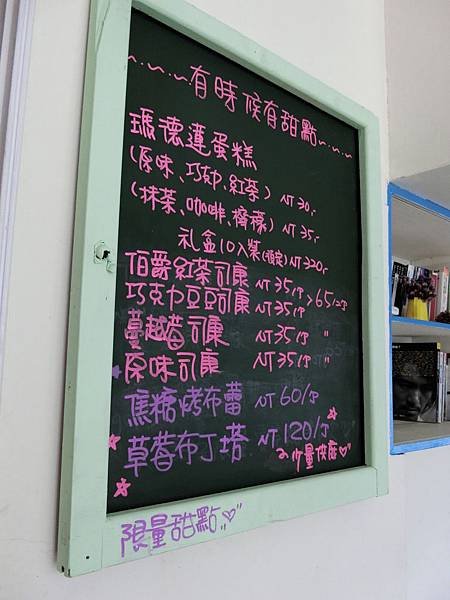 ~.~.~有時候有甜點~.~.~
瑪德蓮蛋糕
(原味、巧克力、紅茶) NT 30,-
(抹茶、咖啡、檸檬) NT 35,-
禮盒10入裝(預定) NT 320,-
伯爵紅茶司康 NT 35/个 > 65/2个
巧克力豆司康 NT 35/个
蔓越莓司康 NT 35/个 "
原味司康 NT 35/个 "
焦糖烤布蕾 NT 60/个
草莓布丁塔 NT 120/个
~少量供應♡
限量甜點♡